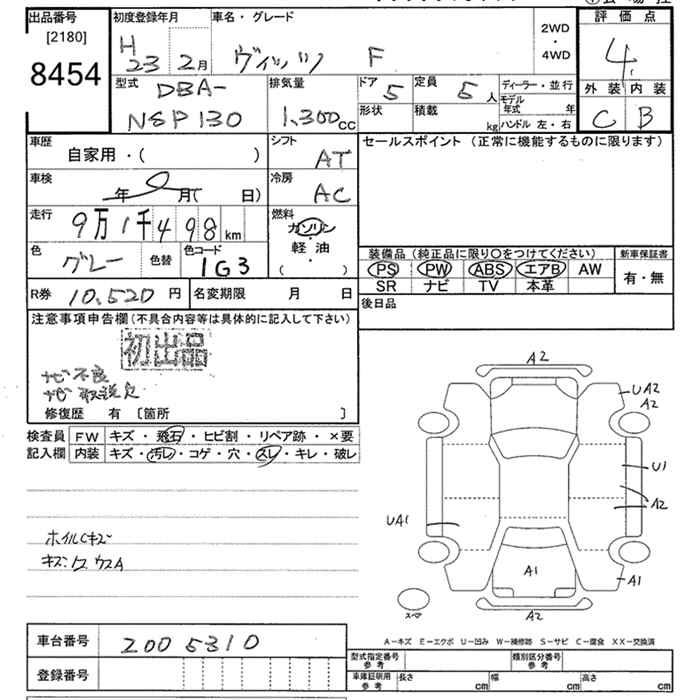 出品番号
[2180]
8454
初度登録年月
H 23 2月
車名・グレード
ヴィッツ F
2WD
・
4WD
評価点
4
外装 内装
C B
型式
DBA-
NSP130
排気量
1,300cc
ドア 5
定員 5人
ディーラー・並行
形状
積載 kg
モデル年式 年
ハンドル 左・右
車歴
自家用・( )
シフト
AT
車検
年 月( 日)
冷房
AC
走行
9万1千498km
燃料
ガソリン
軽・油
( )
色
グレー
色替
色コード
1G3
R券 10,520円
名変期限 月 日
セールスポイント(正常に機能するものに限ります)
装備品(純正品に限り〇をつけてください)
新車保証書
PS PW ABS エアB AW
SR ナビ TV 本革
有・無
後日品
注意事項申告欄(不具合内容等は具体的に記入して下さい)
初出品
ナビ不良
ナビ取説欠
修復歴 有 〔箇所 〕
検査員
記入欄
FW キズ・飛石・ヒビ割・リペア跡・×要
内装 キズ・汚レ・コゲ・穴・スレ・キレ・破レ
ホイルCキズ
A2
UA2
A2
U1
A2
UA1
A1
A1
A2
スペア
A−キズ E−エクボ U−凹み W−補修跡 S−サビ C−腐食 XX−交換済
車台番号 2005310
登録番号
型式指定番号
参考
類別区分番号
参考
車庫証明用
参考
長さ cm
幅 cm
高さ cm